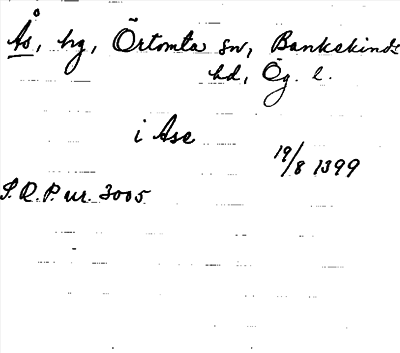 Ås, hg, Örtomta sn, Bankekinds
hd, Ög. l.
i Ase
19/8 1399
S.R.P. nr. 3005